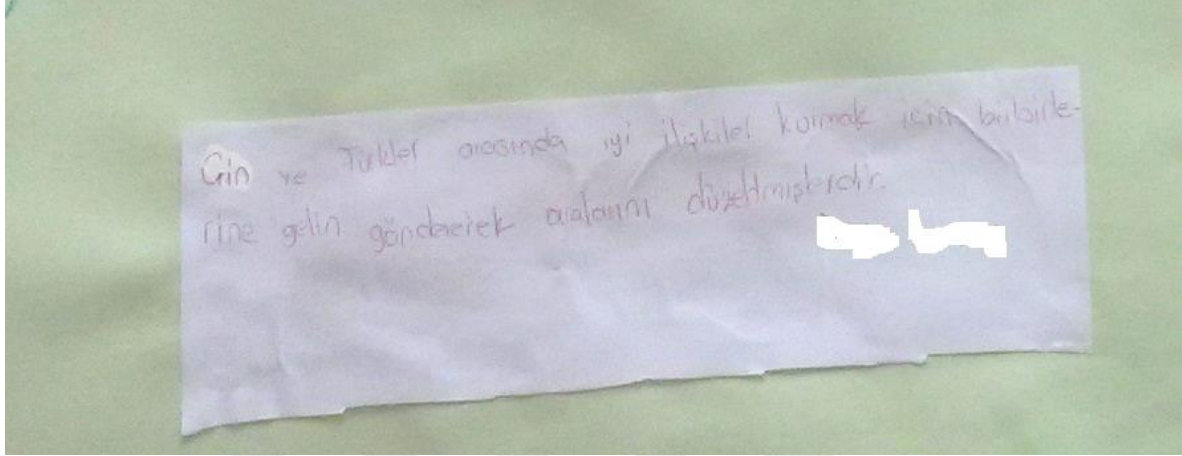 Çin ve Türkler arasında iyi ilişkiler kurmak için birbirle-
rine gelin göndererek aralarını düzeltmişlerdir.